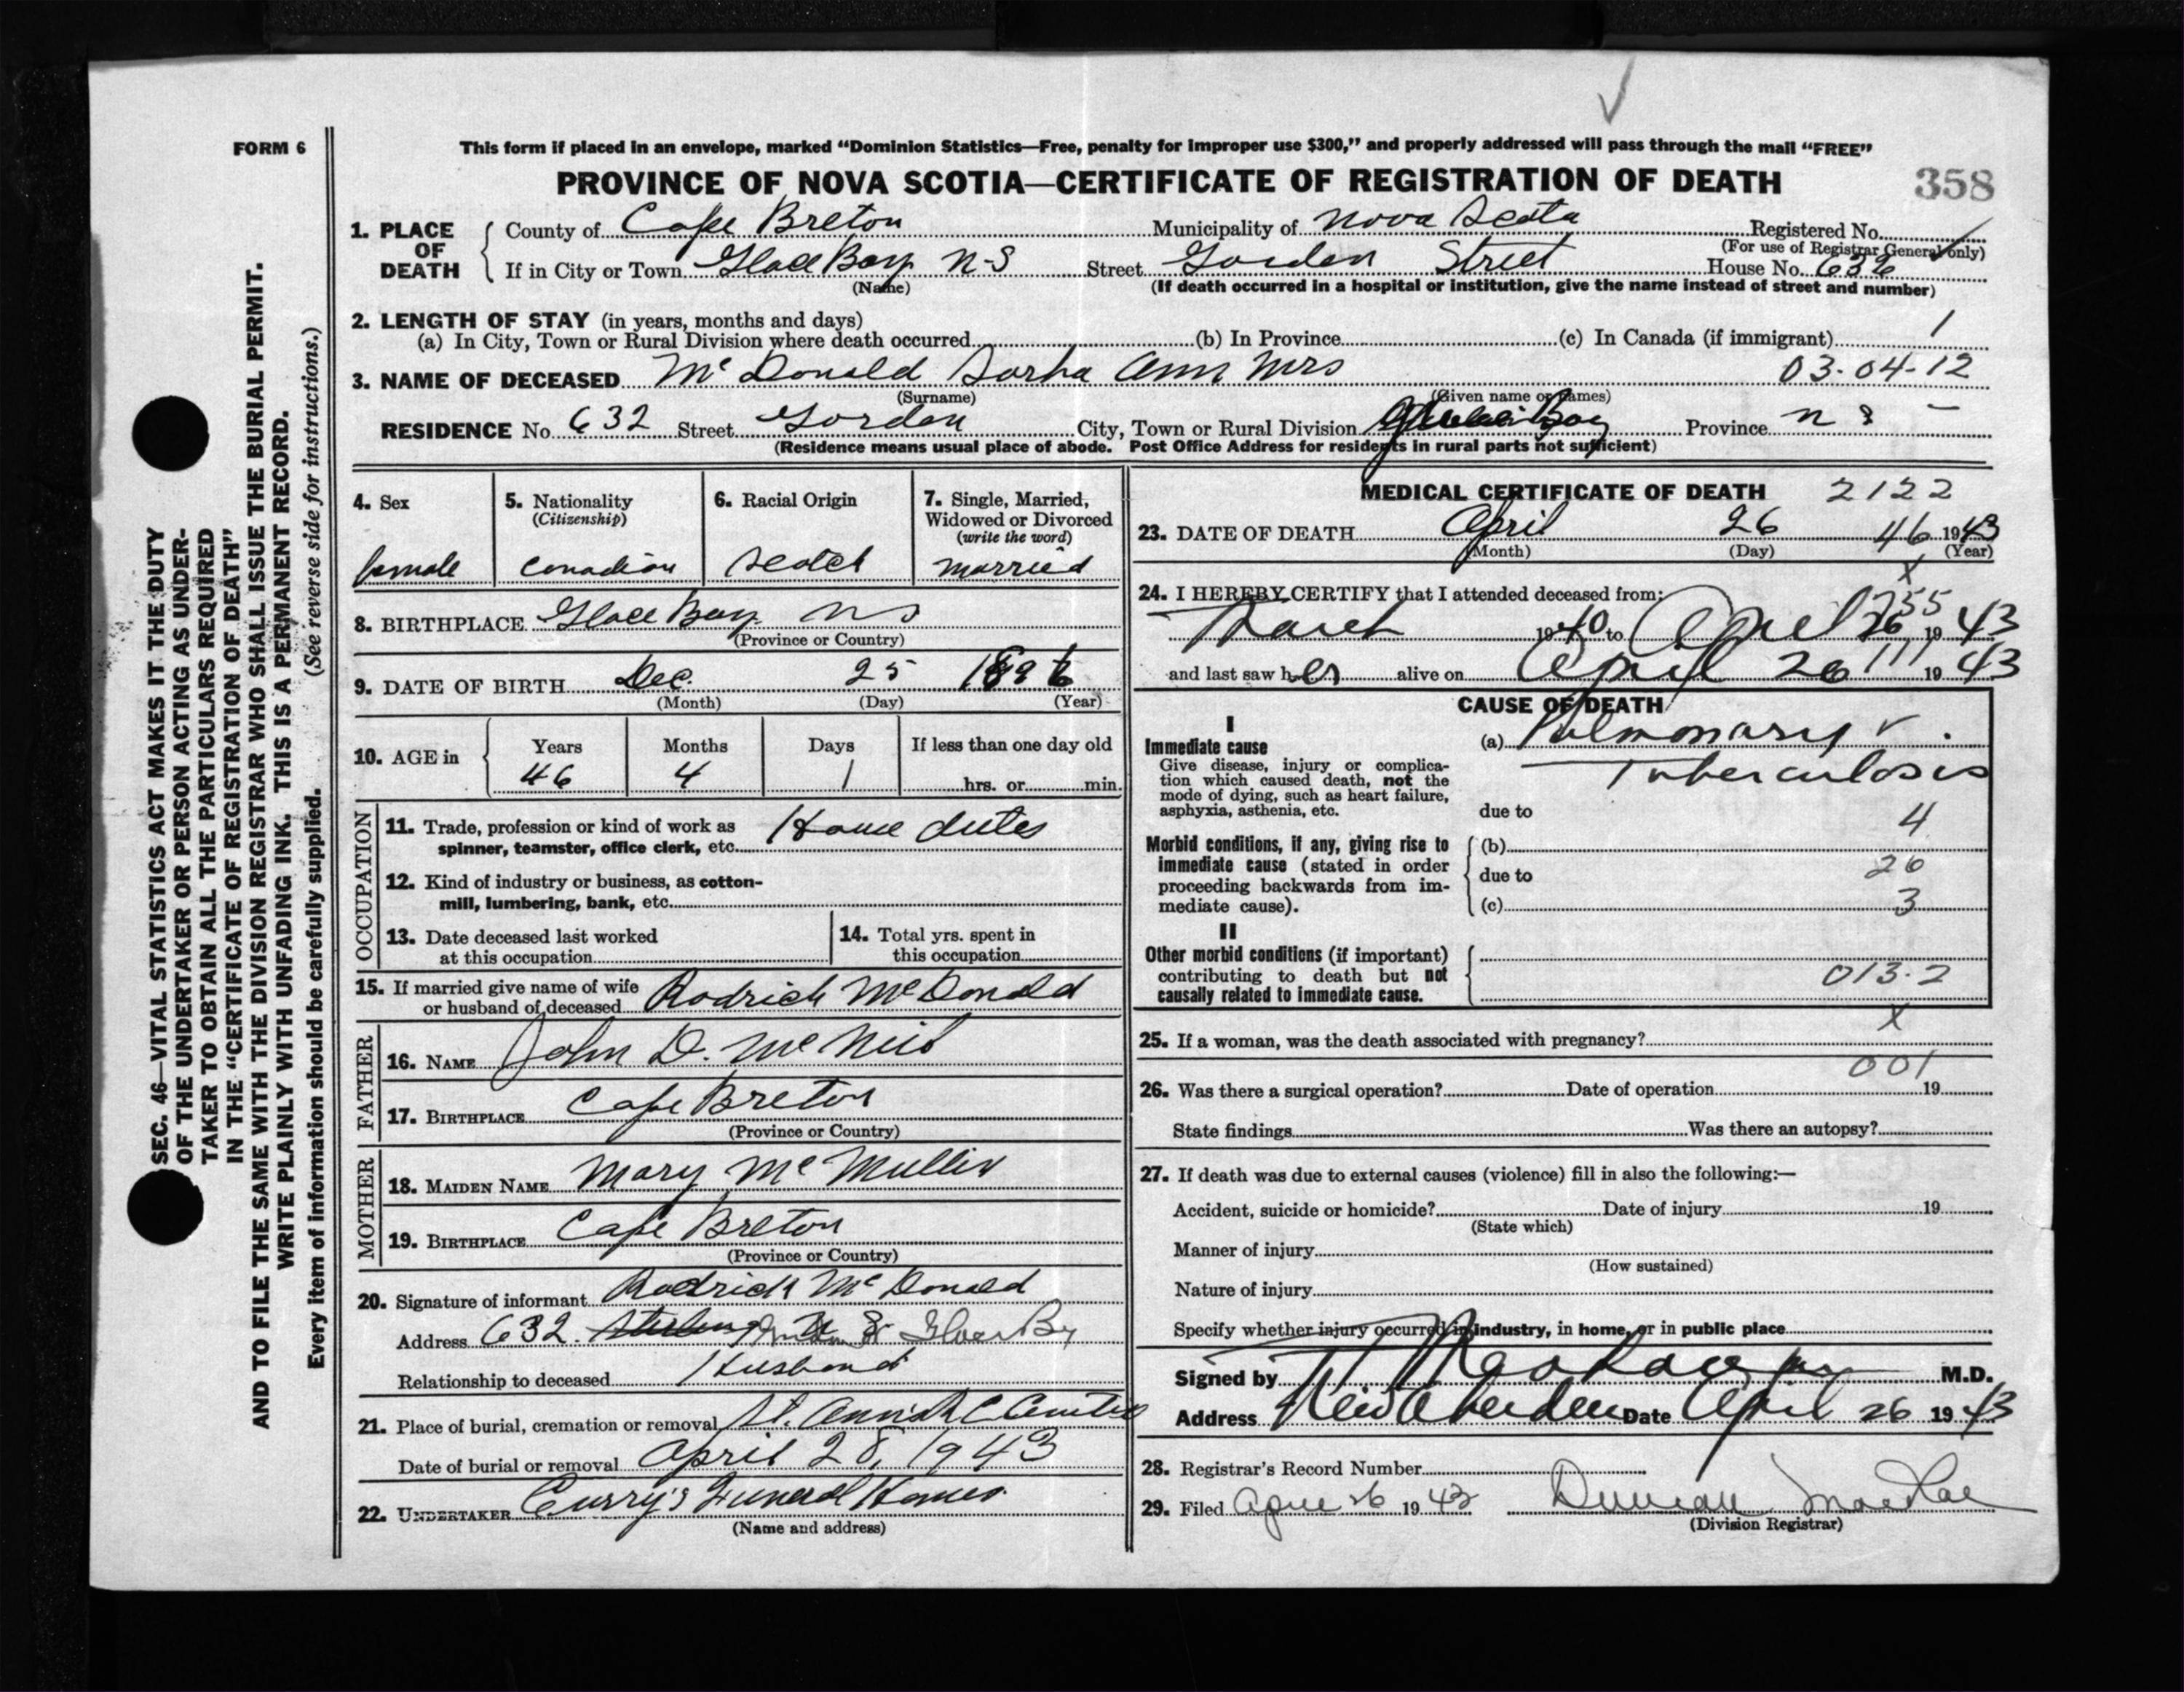 FORM 6
This form if placed in an envelope, marked “Dominion Statistics—Free, penalty for improper use $300,” and properly addressed will pass through the mail “FREE”
PROVINCE OF NOVA SCOTIA—CERTIFICATE OF REGISTRATION OF DEATH
358
1. PLACE OF DEATH
County of Cape Breton Municipality of Nova Scota Registered No.
(For use of Registrar General only)
If in City or Town Glace Bay N-S Street Gorden Street House No. 632
(Name) (If death occurred in a hospital or institution, give the name instead of street and number)
2. LENGTH OF STAY (in years, months and days)
(a) In City, Town or Rural Division where death occurred (b) In Province (c) In Canada (if immigrant) 1
3. NAME OF DECEASED Mc Donald Sarha Ann Mrs 03-04-12
(Surname) (Given name or names)
RESIDENCE No. 632 Street Gorden City, Town or Rural Division Bay Province N S
(Residence means usual place of abode. Post Office Address for residents in rural parts not sufficient)
4. Sex
female
5. Nationality
(Citizenship)
Canadian
6. Racial Origin
Scotch
7. Single, Married,
Widowed or Divorced
(write the word)
married
8. BIRTHPLACE Glace Bay N S
(Province or Country)
9. DATE OF BIRTH Dec. 25 1896
(Month) (Day) (Year)
10. AGE in
Years Months Days If less than one day old
46 4 1 hrs. or min.
OCCUPATION
11. Trade, profession or kind of work as
spinner, teamster, office clerk, etc. House dutes
12. Kind of industry or business, as cotton-
mill, lumbering, bank, etc.
13. Date deceased last worked
at this occupation
14. Total yrs. spent in
this occupation
15. If married give name of wife
or husband of deceased Rodrick McDonald
FATHER
16. NAME John D. McNeil
17. BIRTHPLACE Cape Breton
(Province or Country)
MOTHER
18. MAIDEN NAME Mary McMullin
19. BIRTHPLACE Cape Breton
(Province or Country)
20. Signature of informant Rodrick McDonald
Address 632
Relationship to deceased Husband
21. Place of burial, cremation or removal St. Ann's
Date of burial or removal April 28, 1943
22. UNDERTAKER Curry's Funeral Homes
(Name and address)
MEDICAL CERTIFICATE OF DEATH 2122
23. DATE OF DEATH April 26 46 1943
(Month) (Day) (Year)
X
24. I HEREBY CERTIFY that I attended deceased from:
755
March 1940 to April 26, 1943
and last saw her alive on April 26 111 1943
CAUSE OF DEATH
I
Immediate cause
Give disease, injury or complica-
tion which caused death, not the
mode of dying, such as heart failure,
asphyxia, asthenia, etc.
(a) Pulmonary
Tuberculosis
due to
4
Morbid conditions, if any, giving rise to
immediate cause (stated in order
proceeding backwards from im-
mediate cause).
(b)
26
due to
(c) 3
II
Other morbid conditions (if important)
contributing to death but not
causally related to immediate cause.
013-2
X
25. If a woman, was the death associated with pregnancy?
001
26. Was there a surgical operation? Date of operation 19
State findings Was there an autopsy?
27. If death was due to external causes (violence) fill in also the following:—
Accident, suicide or homicide? Date of injury 19
(State which)
Manner of injury
(How sustained)
Nature of injury
Specify whether injury occurred in industry, in home, or in public place
Signed by M.D.
Address New Aberdeen Date April 26 1943
28. Registrar's Record Number
29. Filed April 26 1943 Duncan MacRae
(Division Registrar)
SEC. 46—VITAL STATISTICS ACT MAKES IT THE DUTY
OF THE UNDERTAKER OR PERSON ACTING AS UNDER-
TAKER TO OBTAIN ALL THE PARTICULARS REQUIRED
IN THE “CERTIFICATE OF REGISTRATION OF DEATH”
AND TO FILE THE SAME WITH THE DIVISION REGISTRAR WHO SHALL ISSUE THE BURIAL PERMIT.
WRITE PLAINLY WITH UNFADING INK. THIS IS A PERMANENT RECORD.
Every item of information should be carefully supplied. (See reverse side for instructions.)